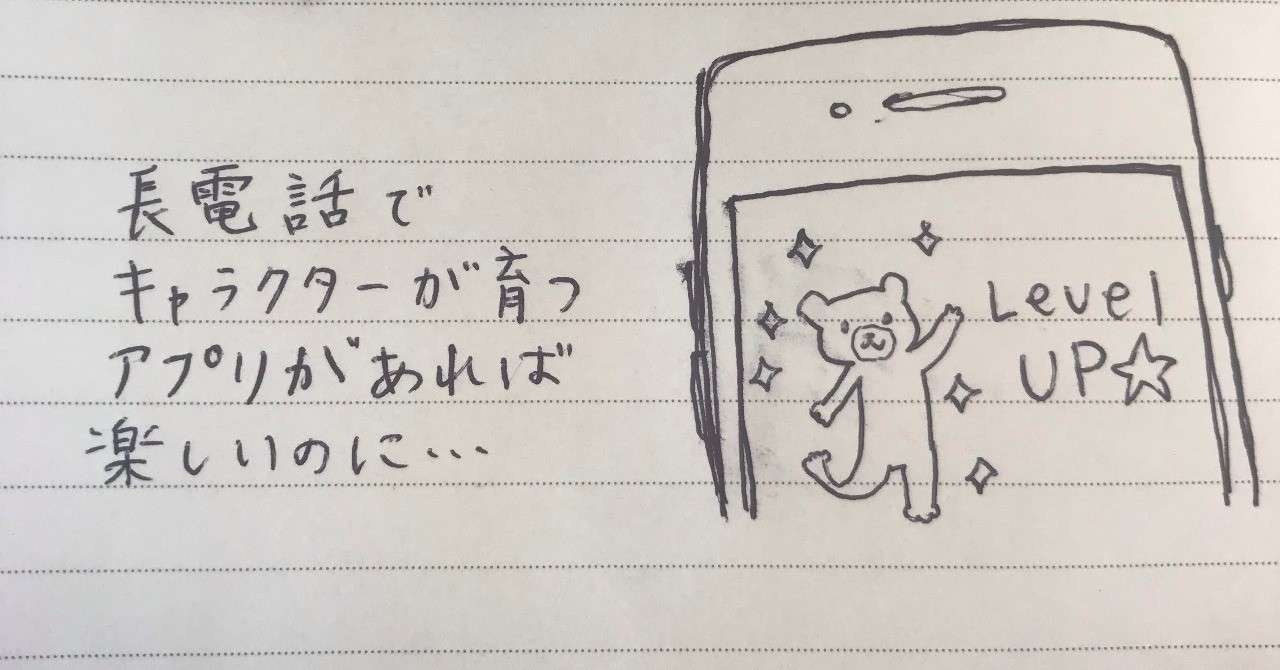 長電話で
キャラクターが育つ
アプリがあれば
楽しいのに…
Level
UP☆